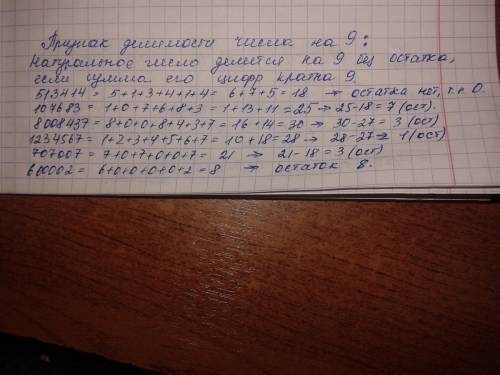 Признак делимости числа на 9:
Натуральное число делится на 9 без остатка,
если сумма его цифр кратна 9.
513414 = 5+1+3+4+1+4 = 6+7+5 = 18 → остатка нет, т.е. 0.
107683 = 1+0+7+6+8+3 = 1+13+11 = 25 → 25-18 = 7 (ост).
8008437 = 8+0+0+8+4+3+7 = 16+14 = 30 → 30-27 = 3 (ост)
1234567 = 1+2+3+4+5+6+7 = 10+18 = 28 → 28-27 = 1 (ост)
707007 = 7+0+7+0+0+7 = 21 → 21-18 = 3 (ост)
600002 = 6+0+0+0+0+2 = 8 → остаток 8.